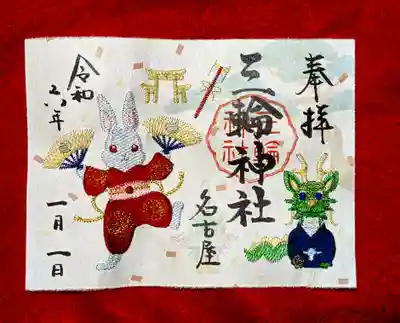 奉拝
三輪神社
三輪
神社
名古屋
令和
六年
一月一日